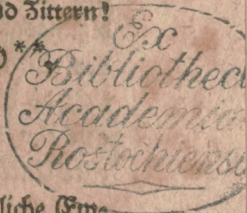 nd Zittern!
Ex
Bibliothec
Academi
Rostochiens
liche